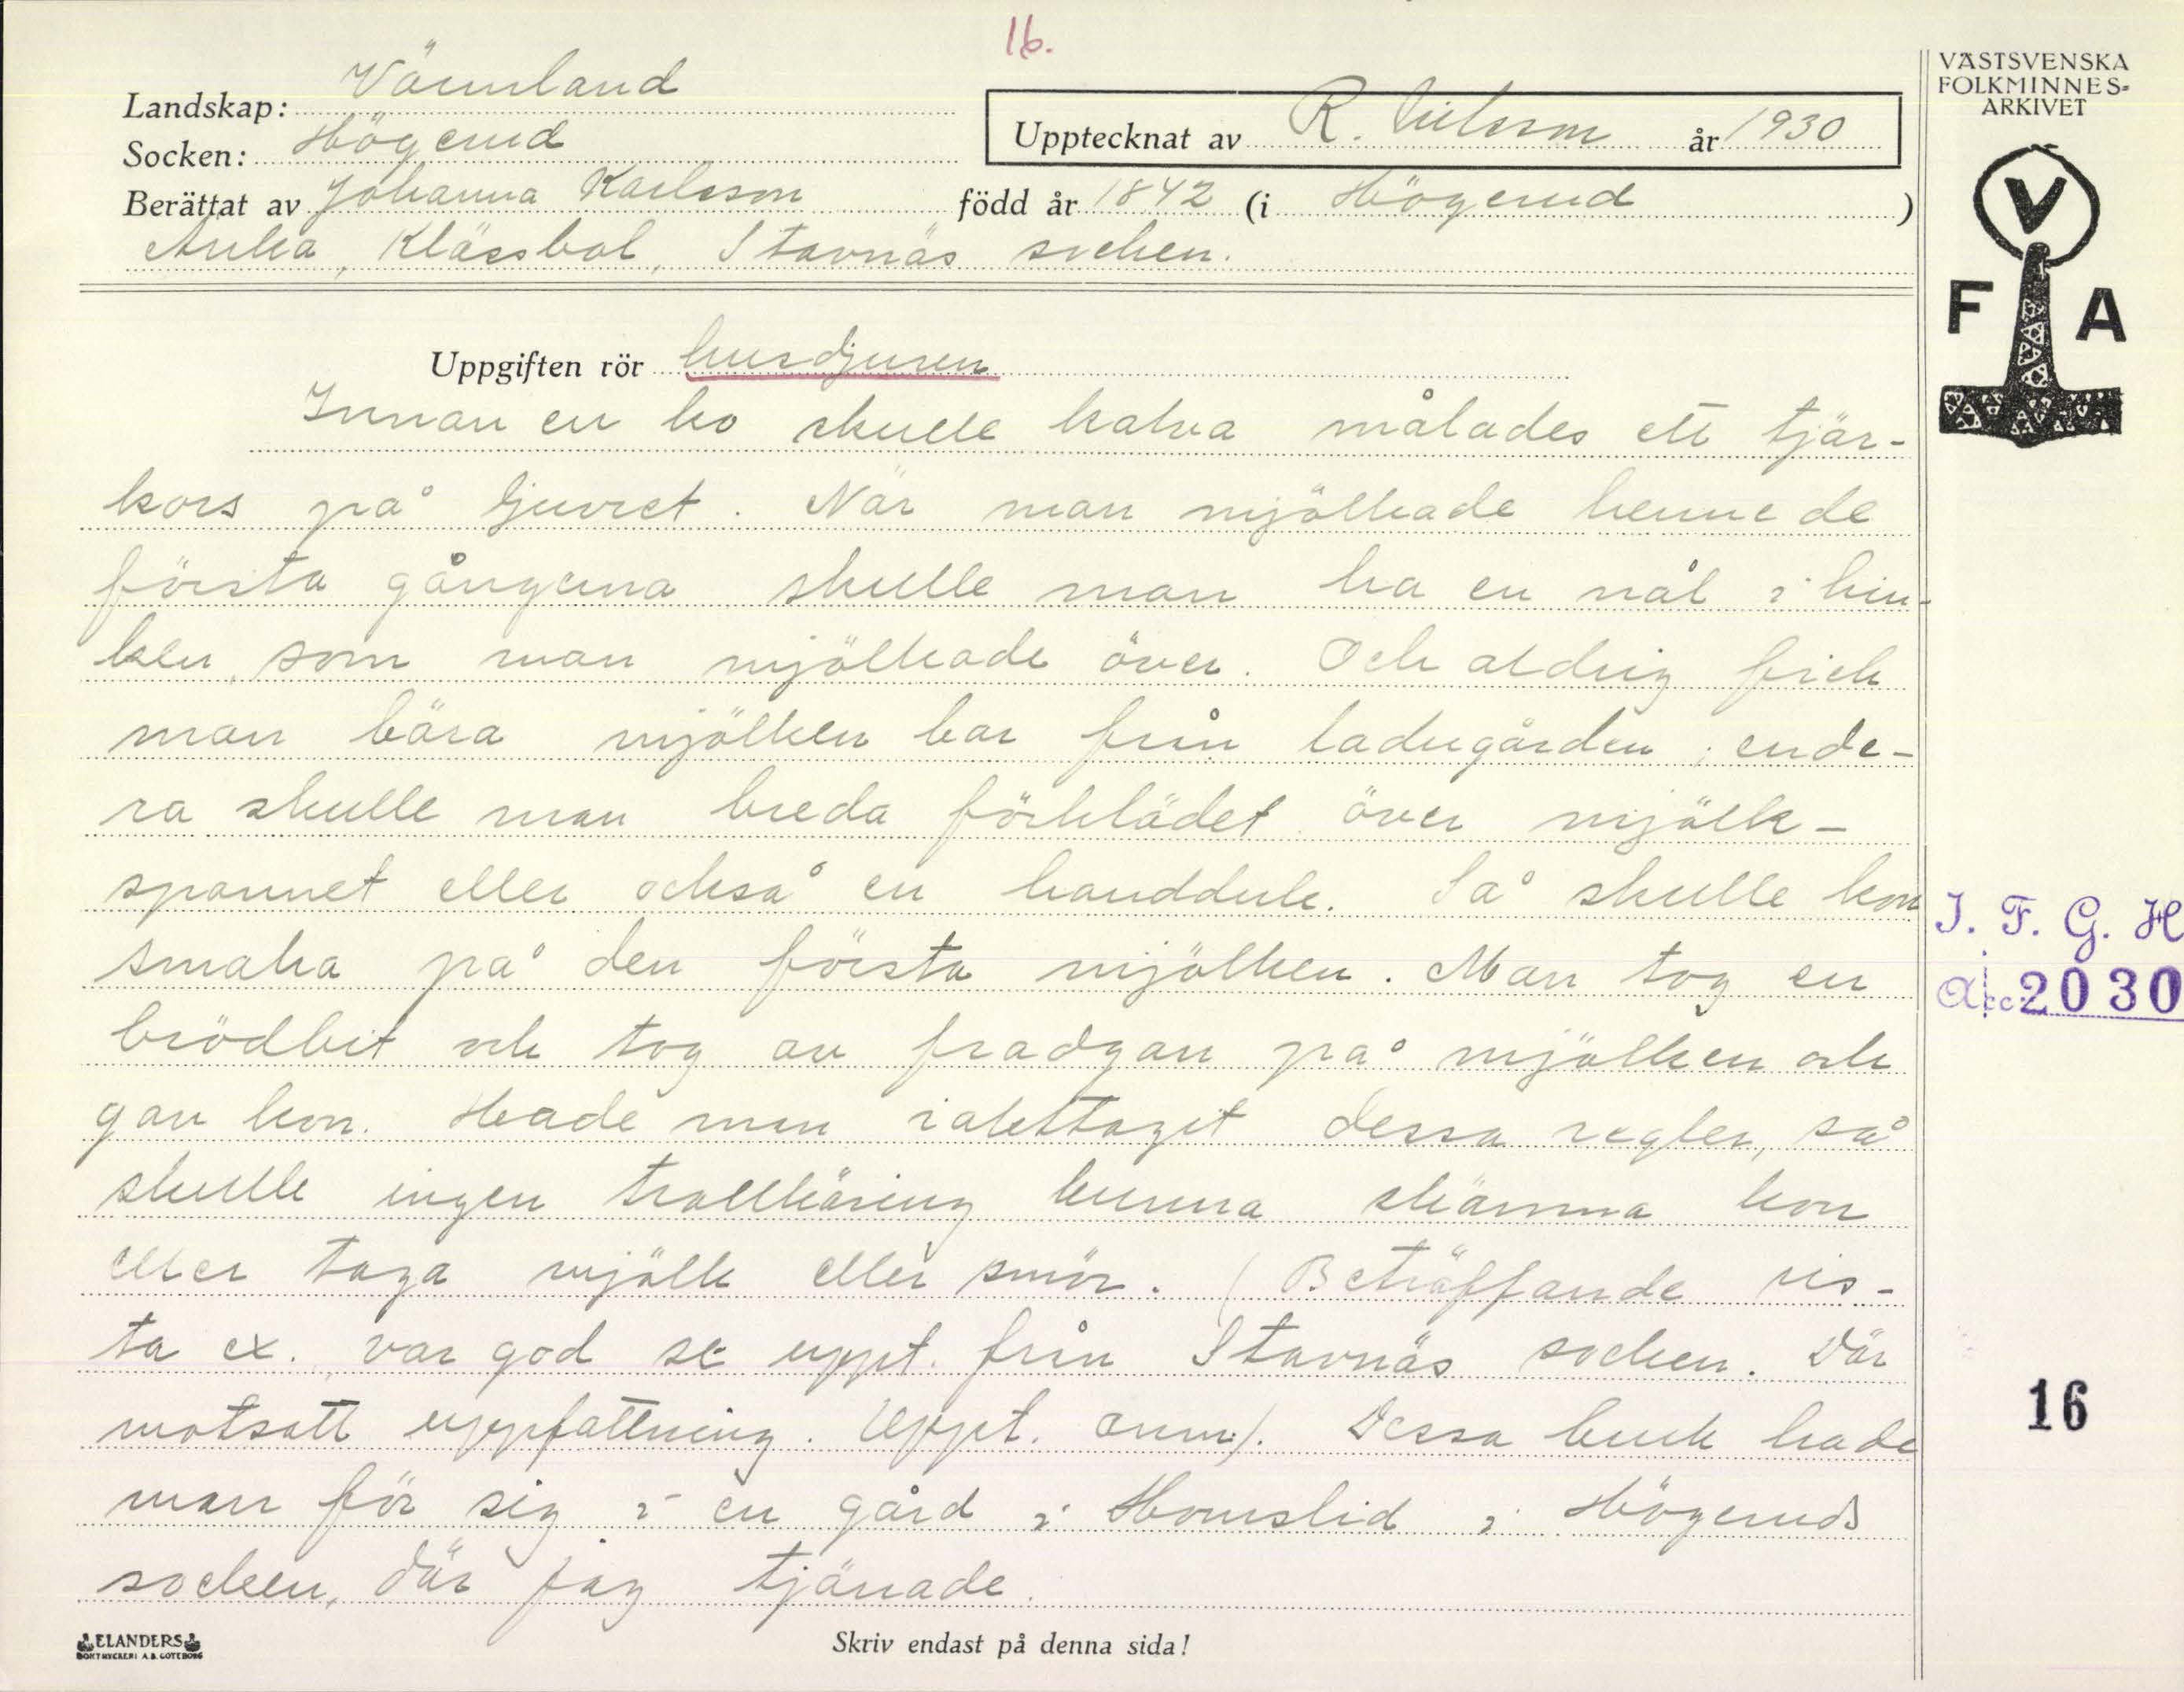 16.
VÄSTSVENSKA
FOLKMINNES-
ARKIVET
Landskap: Värmland
Socken: Högerud
Upptecknat av R. Nilsson år 1930
Berättat av Johanna Karlsson född år 1842 (i Högerud )
Änka, Klässbol, Stavnäs socken.
V
F A
Uppgiften rör husdjuren
Innan en ko skulle kalva målades ett tjär-
kors på juvret. När man mjölkade henne de
första gångerna skulle man ha en nål i hin-
ken, som man mjölkade över. Och aldrig fick
man bära mjölken bar från ladugården; ende-
ra skulle man breda förklädet över mjölk-
spannet eller också en handduk. Så skulle kon
smaka på den första mjölken. Man tog en
brödbit och tog av fradgan på mjölken och
gav kon. Hade man iakttagit dessa regler, så
skulle ingen trollkäring kunna skämma kon
eller taga mjölk eller smör. (Beträffande vis-
ta ex. var god se uppt. från Stavnäs socken. Där
motsatt uppfattning. Uppt. anm.). Dessa bruk hade
man för sig i en gård i Homslid i Högeruds
socken, där jag tjänade.
I. F. G. H
Acc 2030
16
ELANDERS
BOKTRYCKERI A.B. GÖTEBORG
Skriv endast på denna sida!